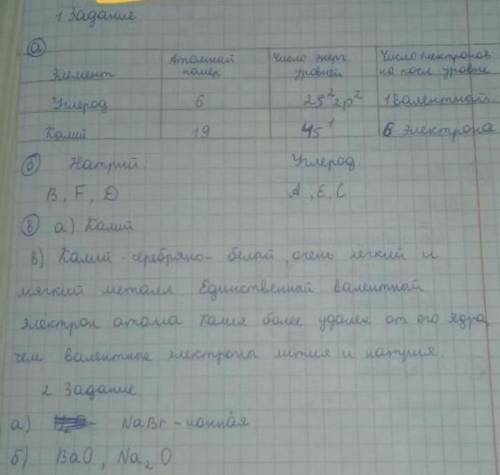 1 Задание
а
Элемент Атомный номер Число энерг. уровней Число электронов на посл. уровне
Углерод 6 2s²2p² 1 валентный
Калий 19 4s¹ 6 электрона
б Натрий: Углерод:
B, F, D A, E, C
в а) Калий
в) Калий - серебряно - белый, очень легкий и
мягкий металл. Единственный валентный
электрон атома калия более удален от его ядра,
чем валентные электроны лития и натрия.
2 Задание
а) NaBr - ионная
б) BaO, Na₂O